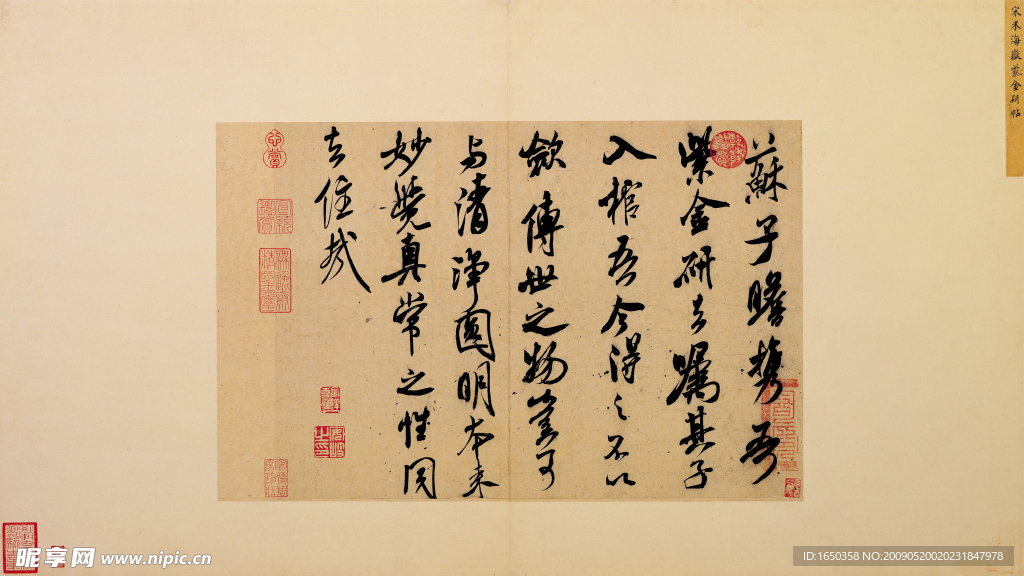 宋米海嶽紫金研帖
蘇子瞻携吾
紫金研去嘱其子
入棺吾今得之不以
歛傳世之物豈可
与清淨圓明本来
妙覺真常之性同
去住哉
昵享网 www.nipic.cn
ID:1650358 NO:20090520020231847978